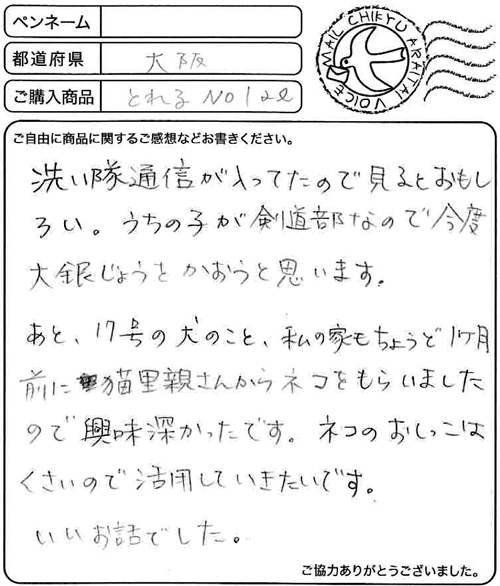 ペンネーム
都道府県 大阪
ご購入商品 とれるNO1 2ℓ
VOICE MAIL CHIKYU ARAITAI
ご自由に商品に関するご感想などお書きください。
洗い隊通信が入ってたので見るとおもし
ろい。うちの子が剣道部なので今度
大銀じょうをかおうと思います。
あと、17号の犬のこと、私の家もちょうど1ヶ月
前に猫里親さんからネコをもらいました
ので興味深かったです。ネコのおしっこは
くさいので活用していきたいです。
いいお話でした。
ご協力ありがとうございました。